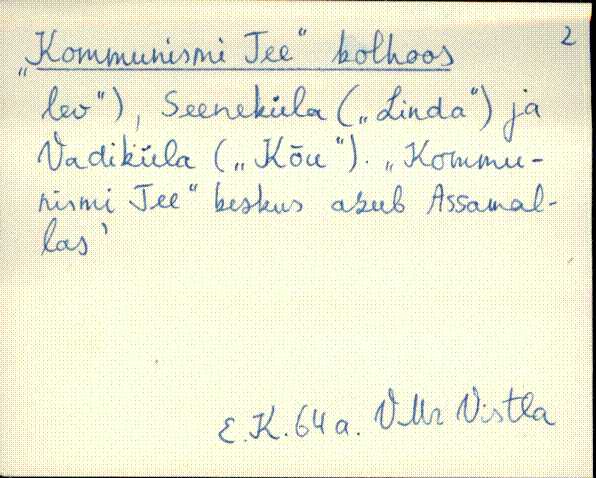 2
„Kommunismi Tee“ kolhoos
lev“), Seeneküla („Linda“) ja
Vadiküla („Kõu“). „Kommu-
nismi Tee“ keskus asub Assamal-
las'
E.K. 64 a. VMr Vistla